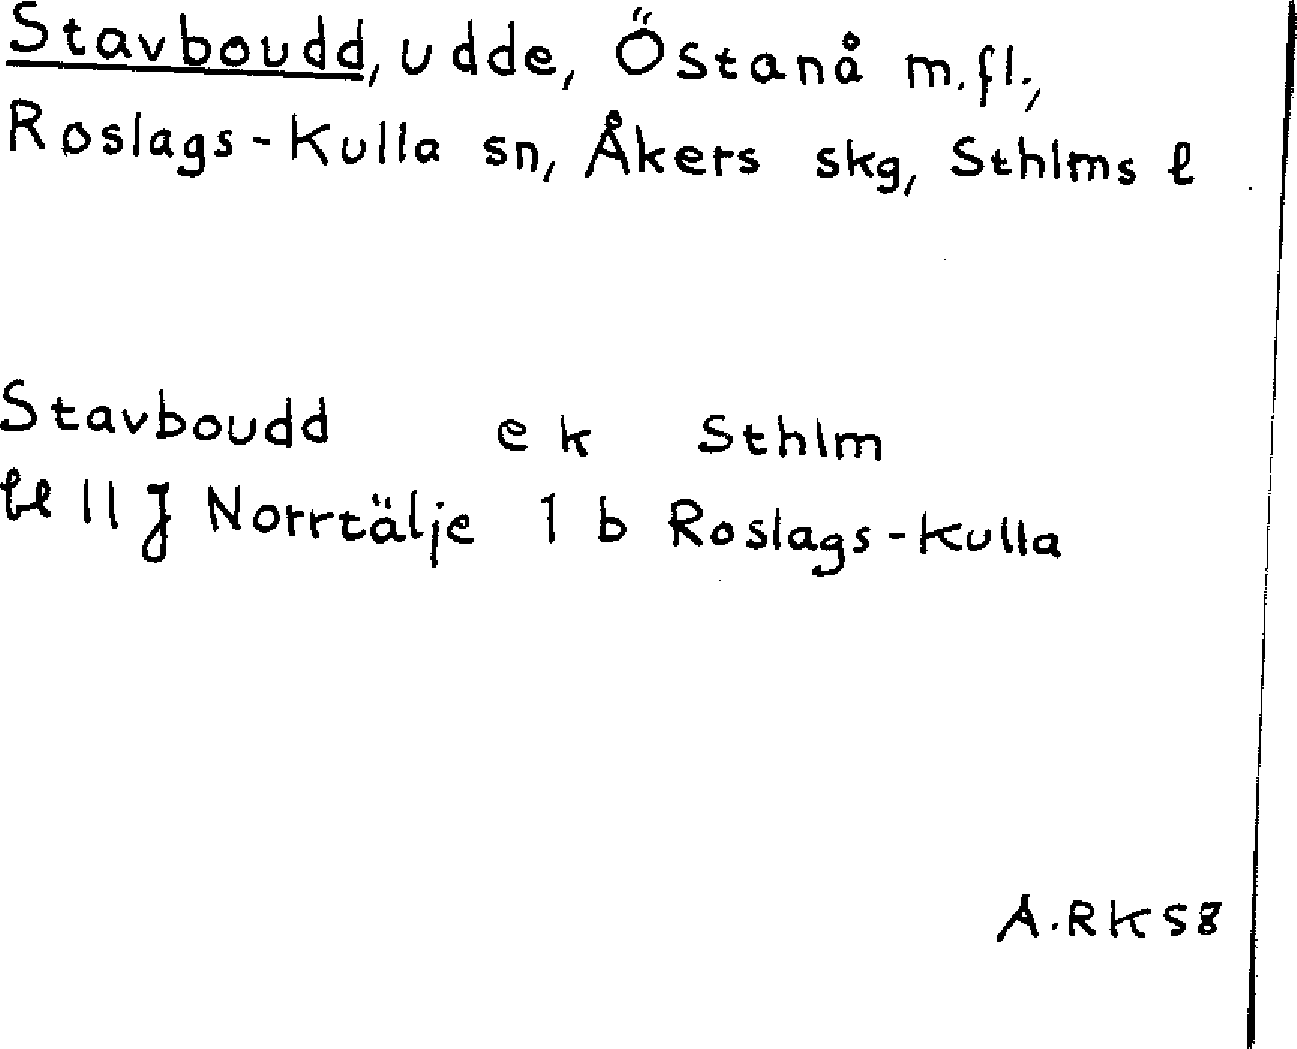 Stavboudd, udde, Östanå m.fl.,
Roslags-Kulla sn, Åkers skg, Sthlms l
Stavboudd ek Sthlm
bl 11 J Norrtälje 1 b Roslags-Kulla
A.RKS8